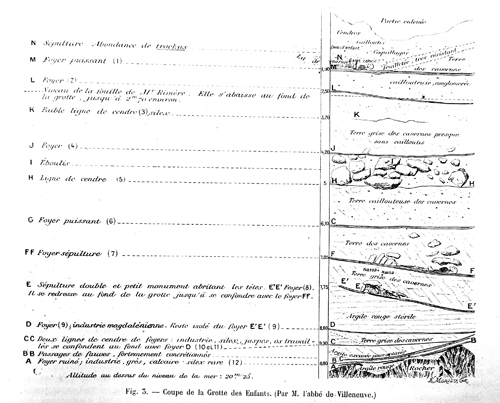 Partie enlevée
Cendres
Cailloutis
N Sépulture Abondance de trochus
M Foyer puissant (1)
Terre
des cavernes
L Foyer (2)
Niveau de la fouille de Mr Rivière. Elle s'abaisse au fond de
la grotte, jusqu'à 2m70 environ.
K Faible ligne de cendre (3), silex
K
Terre grise des cavernes presque
sans cailloutis
J Foyer (4)
J
I Éboulis
H Ligne de cendre (5)
H
Terre caillouteuse des cavernes
G Foyer puissant (6)
Terre des cavernes
FF Foyer sépulture (7)
F
F
Terre grise des cavernes
E Sépulture double et petit monument abritant les têtes. E'E' Foyer (8).
Il se redresse au fond de la grotte jusqu'à se confondre avec le foyer FF.
E'
E'
E
Argile rouge stérile
D Foyer (9); industrie magdalénienne. Reste isolé du foyer E'E' (9)
D
CC Deux lignes de cendre de foyers: industrie, silex, jaspes, os travail-
lés se confondent au fond avec foyer D (10 et 11)
Terre grise des cavernes
BB Passages de fauves, fortement concrétionnés
B
A Foyer ruiné; industrie, grès, calcaire: silex rare (12)
Argile rouge
Rocher
A
Altitude au dessus du niveau de la mer: 20m25.
Fig. 3. — Coupe de la Grotte des Enfants. (Par M. l'abbé de Villeneuve.)